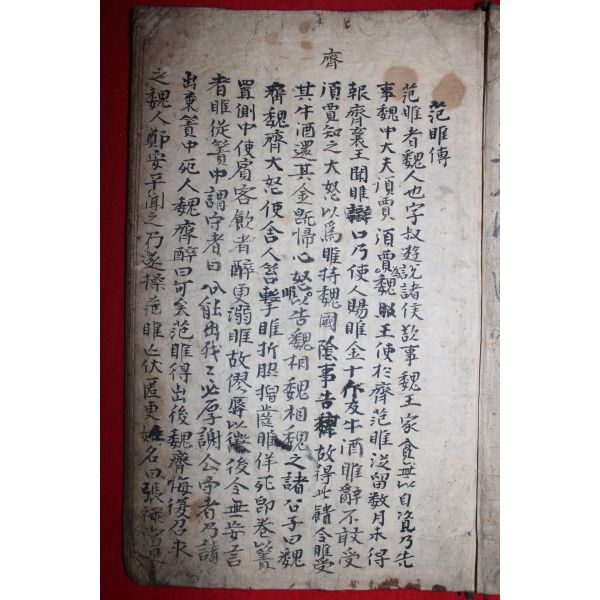 齊
范睢傳
范睢者魏人也字叔遊說諸侯欲事魏王家貧無以自資乃先
事魏中大夫須賈須賈爲魏昭王使於齊范睢從留數月未得
報齊襄王聞睢辯口乃使人賜睢金十斤及牛酒睢辭不敢受
須賈知之大怒以爲睢持魏國陰事告齊故得此饋令睢受
其牛酒還其金旣歸心怒睢以告魏相魏相魏之諸公子曰魏
齊魏齊大怒使舍人笞擊睢折脅摺齒睢佯死卽卷以簀
置厠中使賓客飮者醉更溺睢故僇辱以懲後令無妄言
者睢從簀中謂守者曰公能出我我必厚謝公守者乃請
出棄簀中死人魏齊醉曰可矣范睢得出後魏齊悔復召求
之魏人鄭安平聞之乃遂操范睢亡伏匿更姓名曰張祿當是